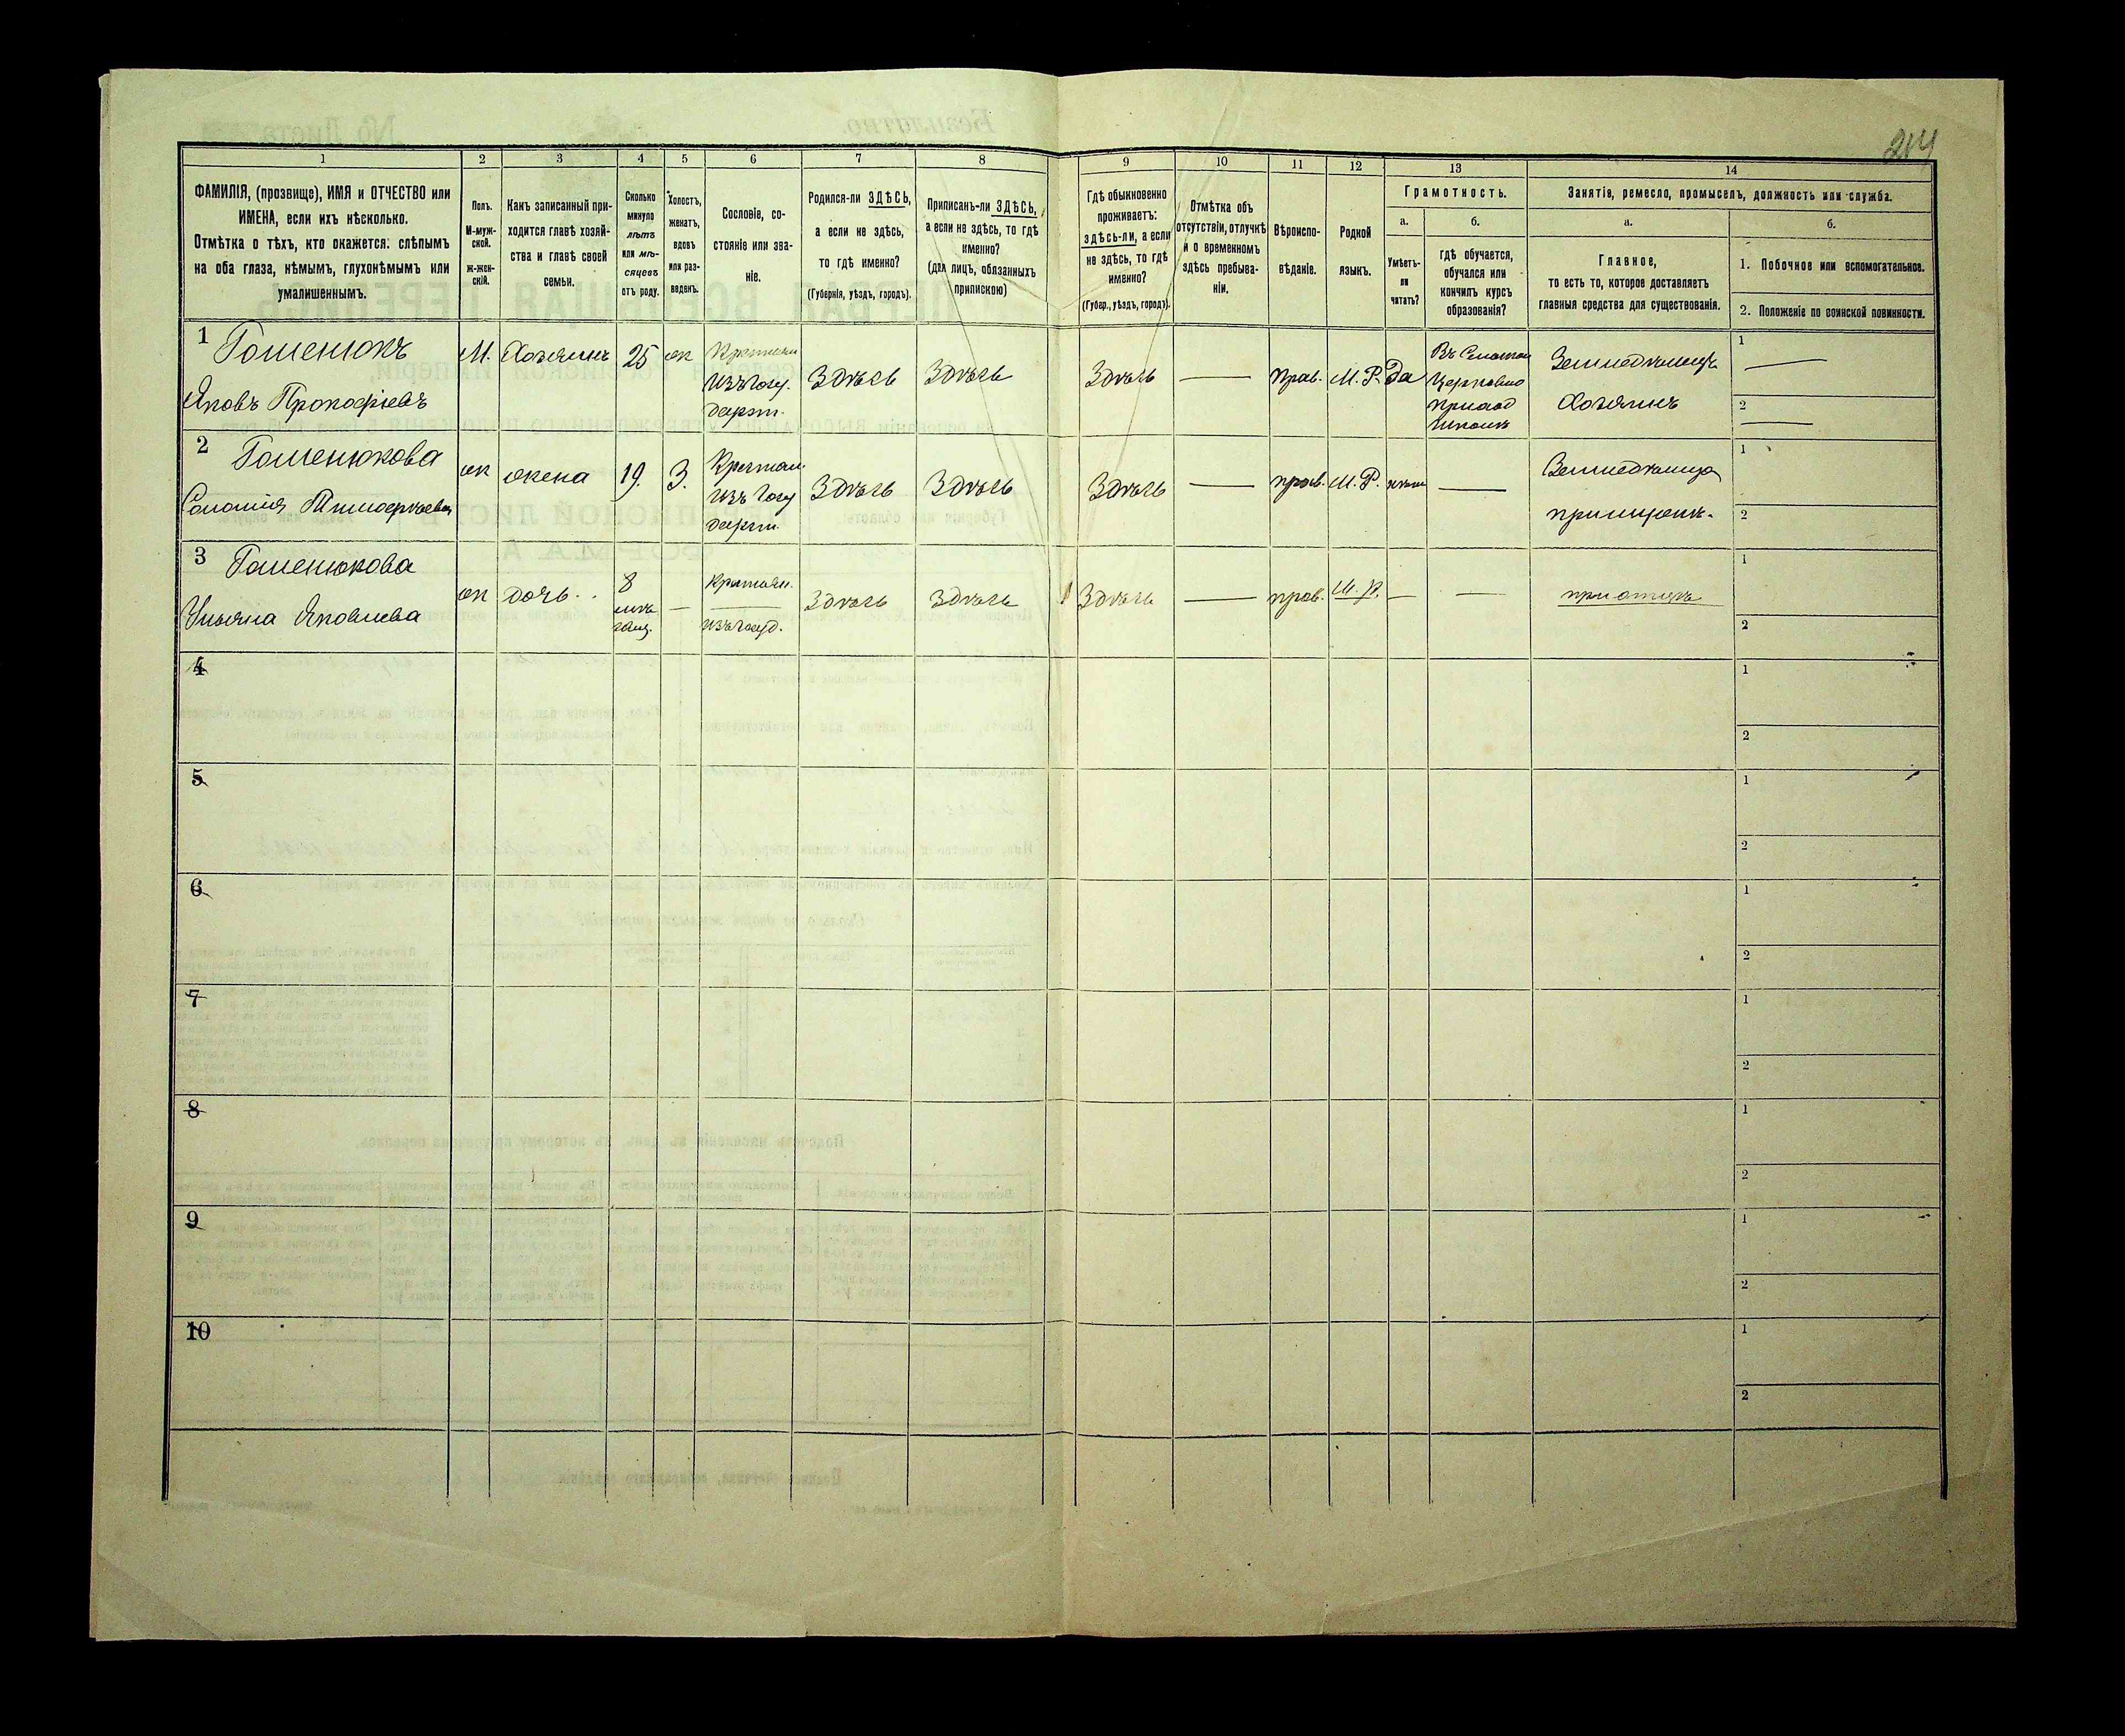 214
1 2 3 4 5 6 7 8 9 10 11 12 13 14
ФАМИЛІЯ, (прозвище), ИМЯ и ОТЧЕСТВО или
ИМЕНА, если ихъ нѣсколько.
Отмѣтка о тѣхъ, кто окажется: слѣпымъ
на оба глаза, нѣмымъ, глухонѣмымъ или
умалишеннымъ.
Полъ.
М-муж-
ской.
ж-жен-
скій.
Какъ записанный при-
ходится главѣ хозяй-
ства и главѣ своей
семьи.
Сколько
минуло
лѣтъ
или мѣ-
сяцевъ
отъ роду.
Холостъ,
женатъ,
вдовъ
или раз-
веденъ.
Сословіе, со-
стояніе или зва-
ніе.
Родился-ли ЗДѢСЬ,
а если не здѣсь,
то гдѣ именно?
(Губернія, уѣздъ, городъ).
Приписанъ-ли ЗДѢСЬ,
а если не здѣсь, то гдѣ
именно?
(для лицъ, обязанныхъ
припискою)
Гдѣ обыкновенно
проживаетъ:
здѣсь-ли, а если
не здѣсь, то гдѣ
именно?
(Губер., уѣздъ, городъ).
Отмѣтка объ
отсутствіи, отлучкѣ
и о временномъ
здѣсь пребыва-
ніи.
Вѣроиспо-
вѣданіе.
Родной
языкъ.
Грамотность.
а.
Умѣетъ-
ли
читать?
б.
гдѣ обучается,
обучался или
кончилъ курсъ
образованія?
Занятіе, ремесло, промыселъ, должность или служба.
а.
Главное,
то есть то, которое доставляетъ
главныя средства для существованія.
б.
1. Побочное или вспомогательное.
2. Положеніе по воинской повинности.
1 Гошенюкъ
Яковъ Прокофіевъ
М.
Хозяинъ
25
ж
Крестьян
изъ госу.
дарст.
Здѣсь
Здѣсь
Здѣсь
—
Прав.
М. Р.
Да
Церковно
приход
школѣ
Хозяинъ
1 —
2 —
2 Гошенюкова
ж
жена
19.
З.
Крестьян.
изъ госу
дарст.
Здѣсь
Здѣсь
Здѣсь
—
прав.
М. Р.
—
1
2
3 Гошенюкова
Ульяна Яковлева
ж
дочь.
8
—
Крестьян.
изъ госуд.
Здѣсь
Здѣсь
Здѣсь
—
прав.
М. Р.
—
—
при отцѣ
1
2
4
1
2
5
1
2
6
1
2
7
1
2
8
1
2
9
1
2
10
1
2